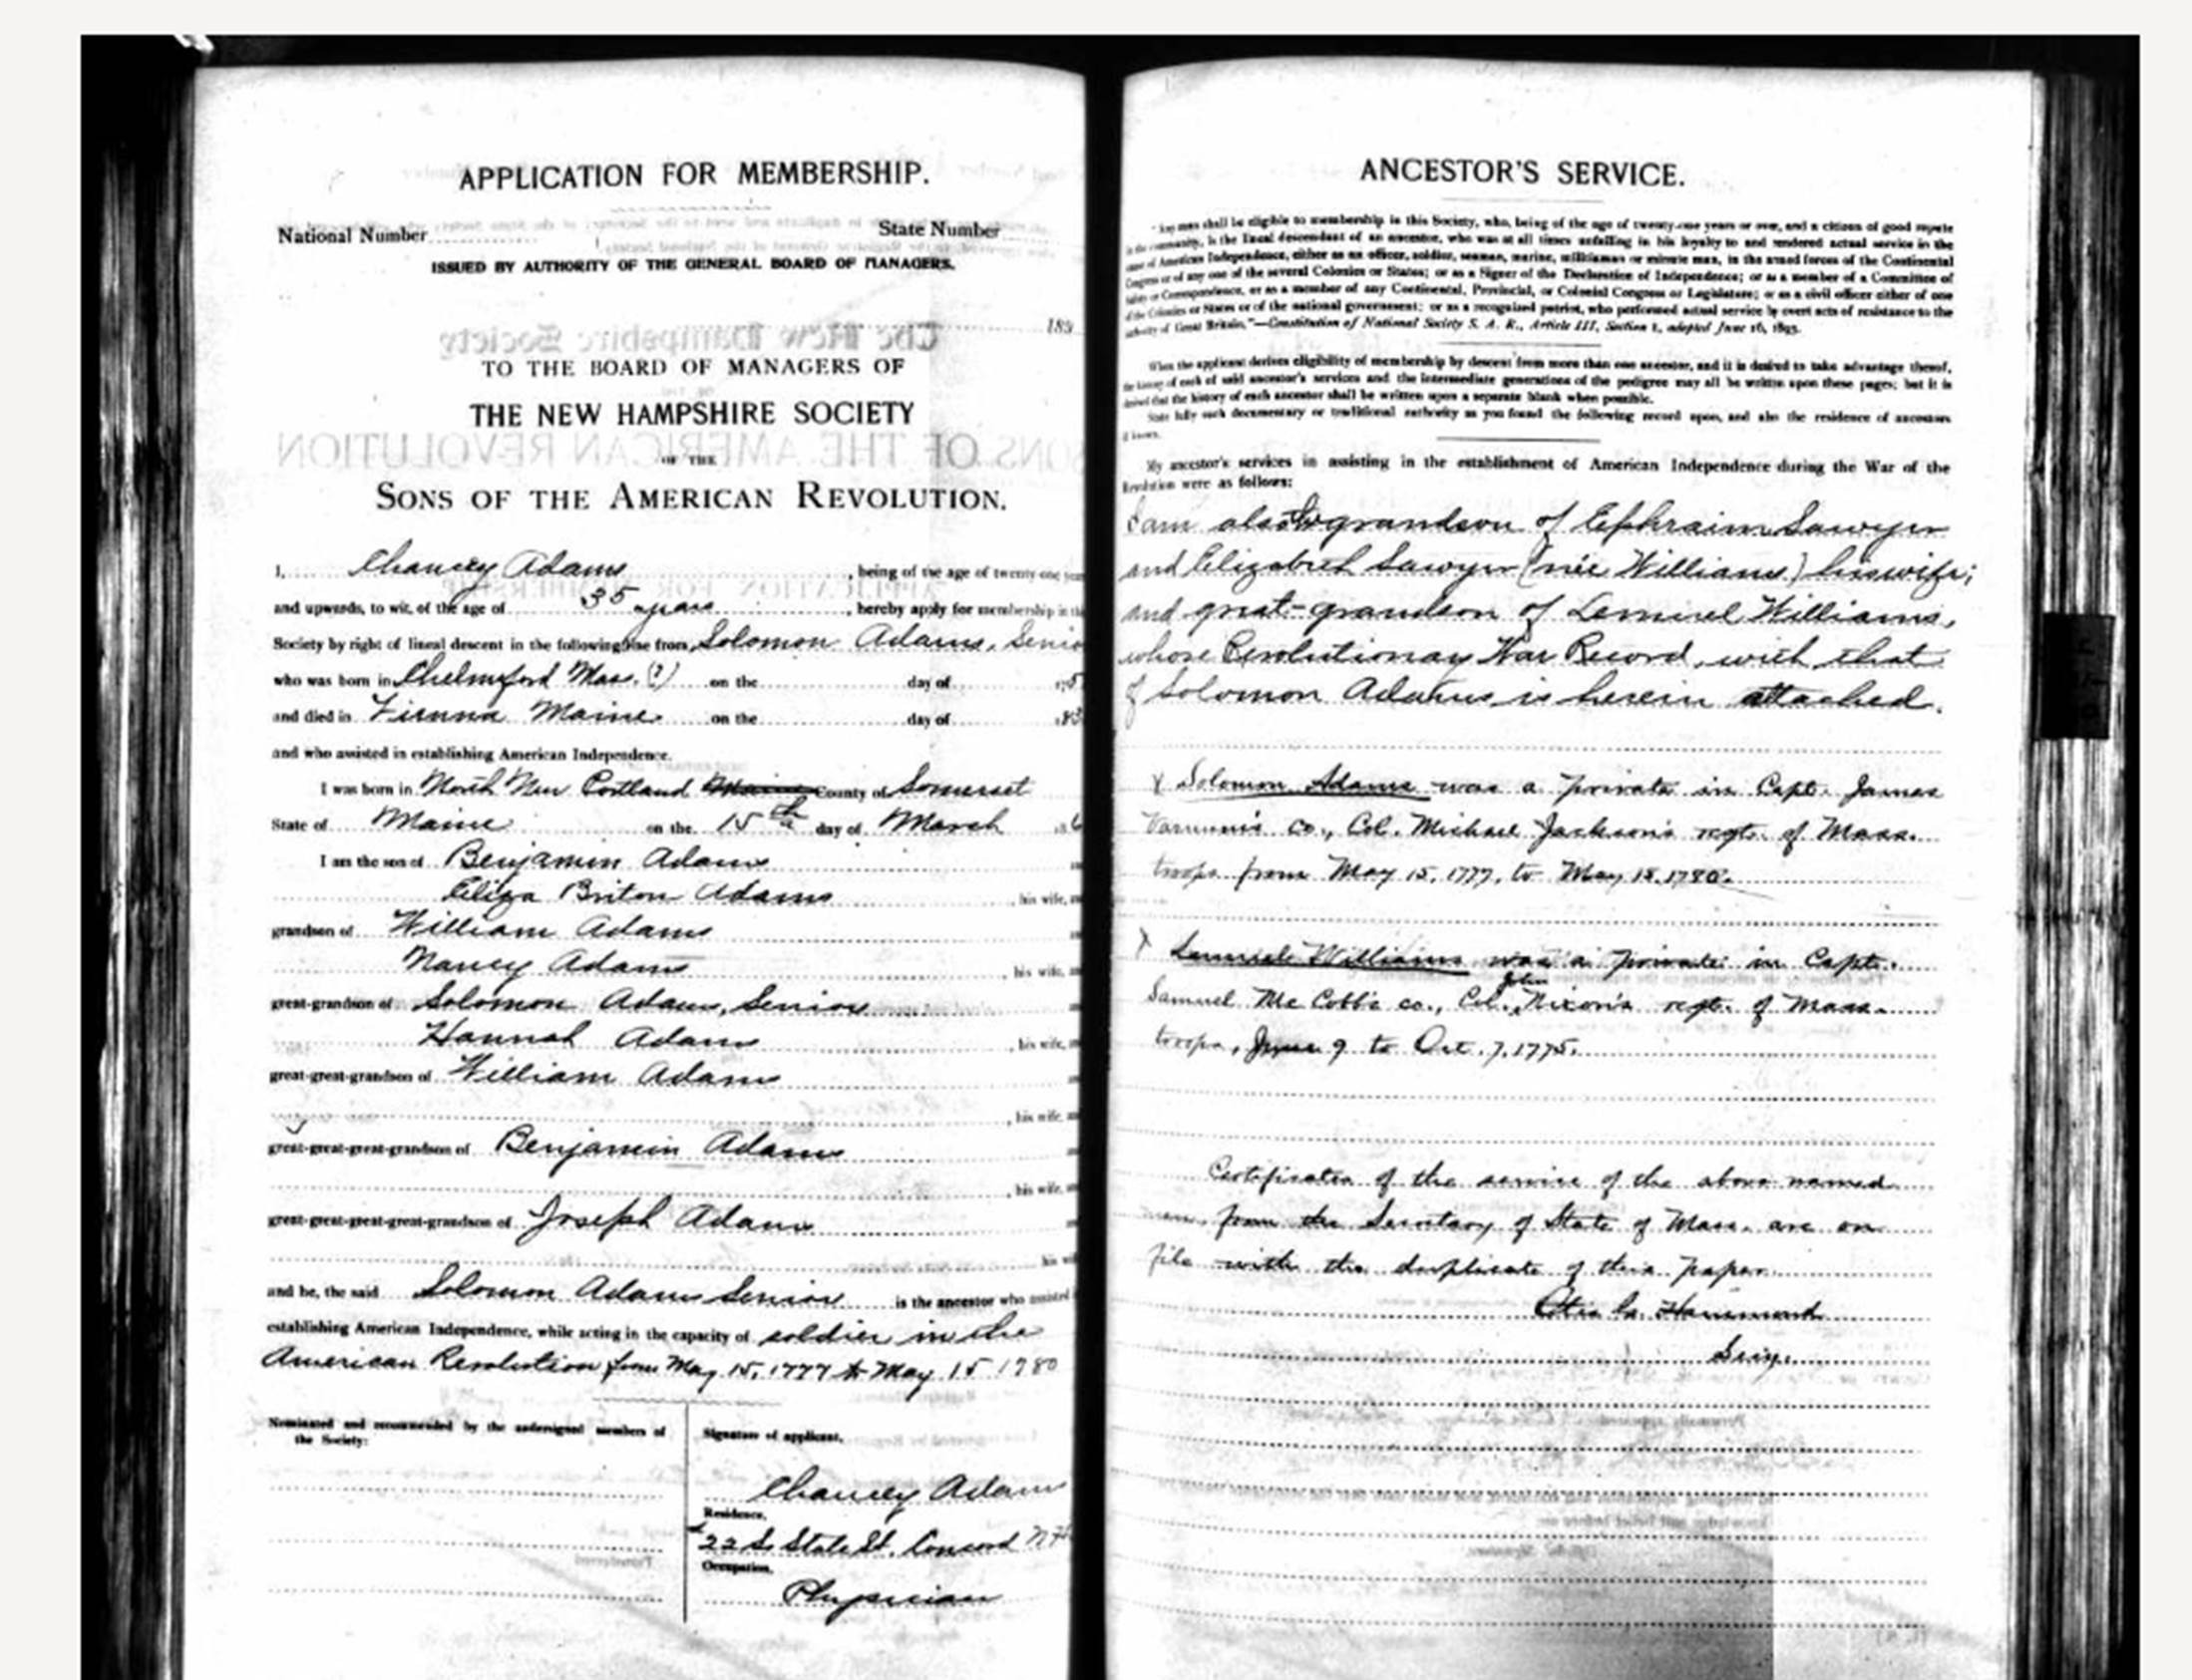 APPLICATION FOR MEMBERSHIP.
National Number State Number
ISSUED BY AUTHORITY OF THE GENERAL BOARD OF MANAGERS.
189
TO THE BOARD OF MANAGERS OF
THE NEW HAMPSHIRE SOCIETY
OF THE
SONS OF THE AMERICAN REVOLUTION.
I, Chancey Adams, being of the age of twenty-one years
and upwards, to wit, of the age of 35 years, hereby apply for membership in the
Society by right of lineal descent in the following line from Solomon Adams, Senio
who was born in Chelmsford Mass. (?) on the day of 175
and died in Vienna Maine on the day of 183
and who assisted in establishing American Independence.
I was born in North New Portland County of Somerset
State of Maine on the 15th day of March 186
I am the son of Benjamin Adams and
Eliza Briton Adams his wife, and
grandson of William Adams and
Nancy Adams his wife, and
great-grandson of Solomon Adams, Senior
Hannah Adams, his wife, and
great-great-grandson of William Adams and
, his wife, and
great-great-great-grandson of Benjamin Adams and
, his wife, and
great-great-great-great-grandson of Joseph Adams and
his wif
and he, the said Solomon Adams Senior is the ancestor who assisted i
establishing American Independence, while acting in the capacity of soldier in the
American Revolution from May 15, 1777 to May 15 1780
Nominated and recommended by the undersigned members of
the Society:
Signature of applicant,
Chancey Adams
Residence,
22 S. State St. Concord NH
Occupation,
Physician
ANCESTOR'S SERVICE.
"Any man shall be eligible to membership in this Society, who, being of the age of twenty-one years or over, and a citizen of good repute
in the community, is the lineal descendant of an ancestor, who was at all times unfailing in his loyalty to and rendered actual service in the
cause of American Independence, either as an officer, soldier, seaman, marine, militiaman or minute man, in the armed forces of the Continental
Congress or of any one of the several Colonies or States; or as a Signer of the Declaration of Independence; or as a member of a Committee of
Safety or Correspondence, or as a member of any Continental, Provincial, or Colonial Congress or Legislature; or as a civil officer either of one
of the Colonies or States or of the national government; or as a recognized patriot, who performed actual service by overt acts of resistance to the
authority of Great Britain."—Constitution of National Society S. A. R., Article III, Section 1, adopted June 16, 1893.
When the applicant derives eligibility of membership by descent from more than one ancestor, and it is desired to take advantage thereof,
the history of each of said ancestor's services and the intermediate generations of the pedigree may all be written upon these pages; but it is
desired that the history of each ancestor shall be written upon a separate blank when possible.
State fully such documentary or traditional authority as you found the following record upon, and also the residence of ancestors
if known.
My ancestor's services in assisting in the establishment of American Independence during the War of the
Revolution were as follows:
I am also grandson of Ephraim Sawyer
and Elizabeth Sawyer (née Williams) his wife;
and great-grandson of Lemuel Williams,
whose Revolutionay War Record, with that
of Solomon Adams is herein attached.
Solomon Adams was a private in Capt. James
Varnum's co., Col. Michael Jackson's regt. of Mass.
troops from May 15, 1777, to May 15, 1780.
Lemuel Williams was a private in Capt.
Samuel McCobb's co., Col. John Nixon's regt. of Mass.
troops, June 9 to Oct. 7, 1775.
Certificates of the service of the above named
men, from the Secretary of State of Mass. are on
file with the duplicate of this paper.
Otis G. Hammond